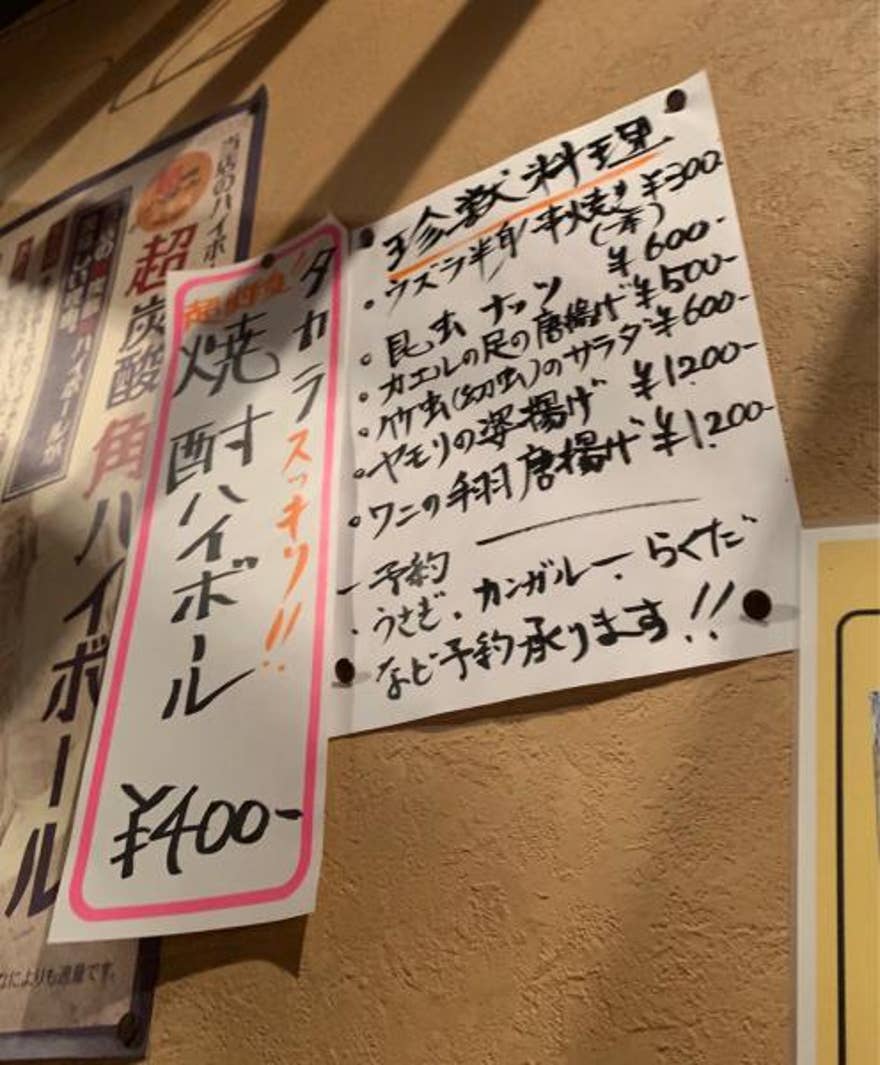 珍獣料理
・ウズラ半身串焼き ¥300
(一本)
・昆虫ナッツ ¥600-
・カエルの足の唐揚げ ¥500-
・竹虫(幼虫)のサラダ ¥600-
・ヤモリの姿揚げ ¥1,200-
・ワニの手羽唐揚げ ¥1,200-
- 予約
・うさぎ、カンガルー、らくだ
など予約承ります!!
タカラ
スッキリ!!
焼酎ハイボール
¥400-
当店のハイボー
超炭酸角ハイボール
なによりも適量です。